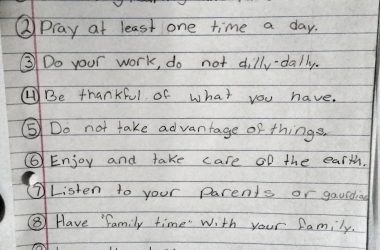 ② Pray at least one time a day.
③ Do your work, do not dilly-dally.
④ Be thankful of what you have.
⑤ Do not take advantage of things.
⑥ Enjoy and take care of the earth.
⑦ Listen to your parents or gaurdian
⑧ Have "family time" with your family.